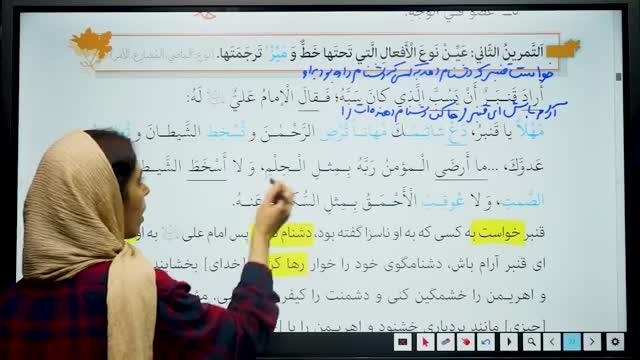 ۵ـ عضو في الوجه:
اَلتَّمرينُ الثّاني: عَيِّنْ نَوعَ الْأَفعالِ الَّتي تَحتَها خَطٌّ وَ مَيِّزْ تَرجَمَتَها.
خواست قنبر که دشنام دهد به کسی که دشنام داده بود به او
أَرادَ قَنبَرٌ أَنْ يَسُبَّ الَّذي كانَ سَبَّهُ؛ فَقالَ الْإمامُ عَليٌّ لَهُ:
آرام باش ای قنبر رها کن دشنام دهنده‌ات را
مَهلاً يا قَنبَرُ، دَعْ شاتِمَكَ مُهاناً تُرْضِ الرَّحْمٰنَ وَ تُسْخِطِ الشَّيطانَ وَ
عَدوَّكَ، ...ما أَرضَى الْمؤمنُ رَبَّهُ بِمِثلِ الْحِلْمِ، وَ لا أَسْخَطَ
الصَّمتِ، وَ لا عُوقِبَ الْأَحمَقُ بِمِثلِ عَنهُ.
قنبر خواست به کسی که به او ناسزا گفته بود، دشنام پس امام علی به او
ای قنبر آرام باش، دشنامگوی خود را خوار رها [خدای] بخشاینده
و اهریمن را خشمگین کنی و دشمنت را کیفر
[چیزی] مانند بردباری خشنود و اهریمن را با